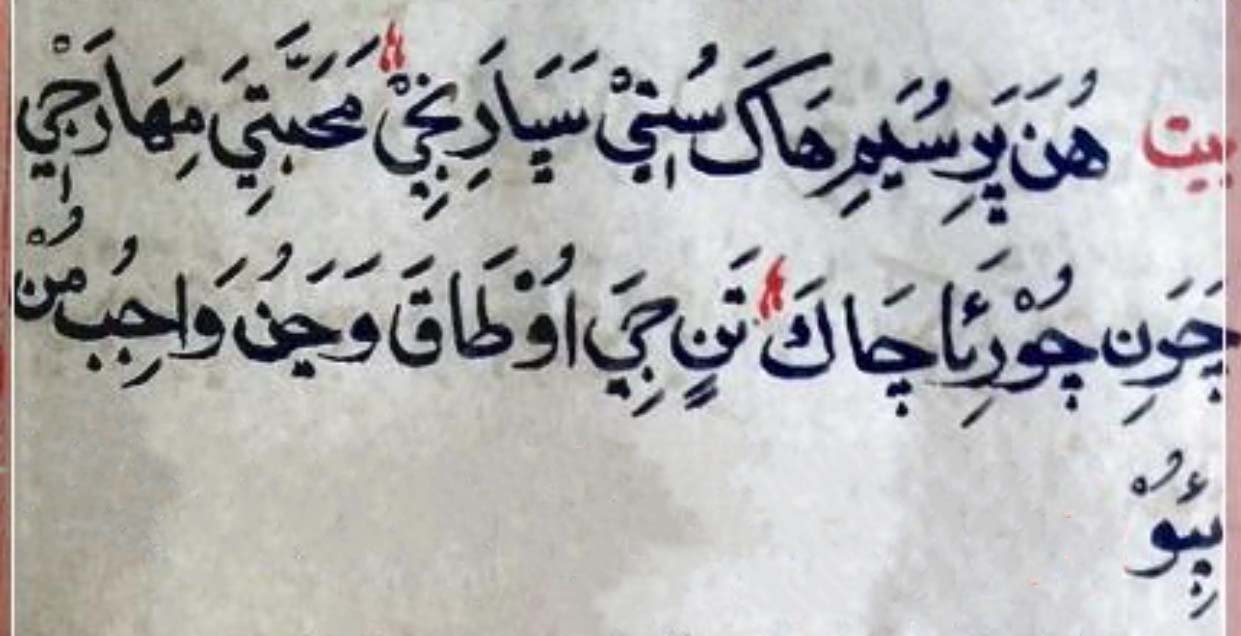 بيت هُنَ پَرِ سُيَمِ هَاکَ سُتِيْ سَيَارِيجِيْ مَحَبَّتِيَ مِهَارَجِيْ
چَوَنِ چُوْرِئَا چَاكَ تَنِ جِيَ اُوْطَاقَ وَڃَڻُ وَاجِبُ مُنْ
پِئُوْ